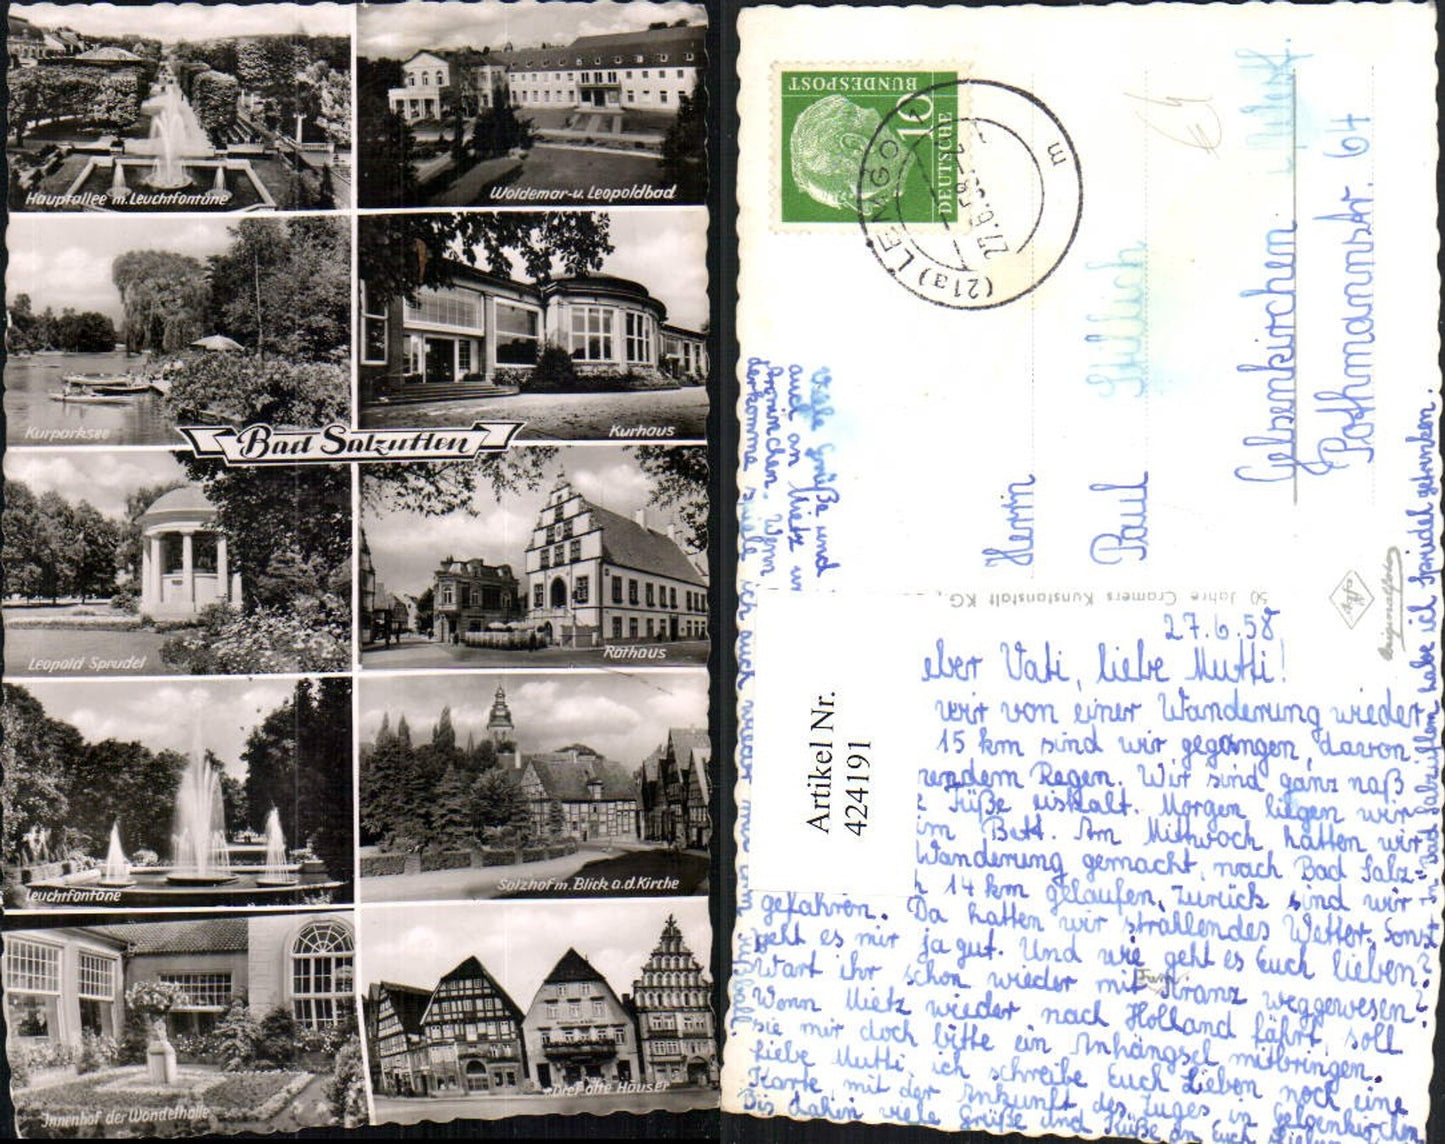 Hauptallee m. Leuchtfontäne
Woldemar-u. Leopoldbad
Kurparksee
Kurhaus
Bad Salzuflen
Leopold Sprudel
Rathaus
Leuchtfontäne
Salzhof m. Blick a.d. Kirche
Innenhof der Wandelhalle
Drei alte Häuser
DEUTSCHE
BUNDESPOST
10
(21a) LEMGO 1
27.6.58
m
Herrn
Paul
Gelsenkirchen
Pothmannstr. 64
50 Jahre Cramers Kunstanstalt KG.
Agfa
Originalfoto
Artikel Nr.
424191
27.6.58
eber Vati, liebe Mutti!
wir von einer Wanderung wieder
15 km sind wir gegangen, davon
rendem Regen. Wir sind ganz naß
Füße eiskalt. Morgen liegen wir
im Bett. Am Mittwoch hatten wir
Wanderung gemacht, nach Bad Salz=
14 km gelaufen, zurück sind wir
gefahren. Da hatten wir strahlendes Wetter. Sonst
geht es mir ja gut. Und wie geht es Euch lieben?
Wart ihr schon wieder mit Franz weggewesen?
Wenn Mietz wieder nach Holland fährt, soll
sie mir doch bitte ein Anhängsel mitbringen.
Liebe Mutti, ich schreibe Euch Lieben noch eine
Karte mit der Ankunft des Zuges in Gelsenkirchen
Bis dahin viele Grüße und Küße an Euch
Viele Grüße und
auch an Mietz u
Wenn
In Bad Salzuflen habe ich Sprudel getrunken.